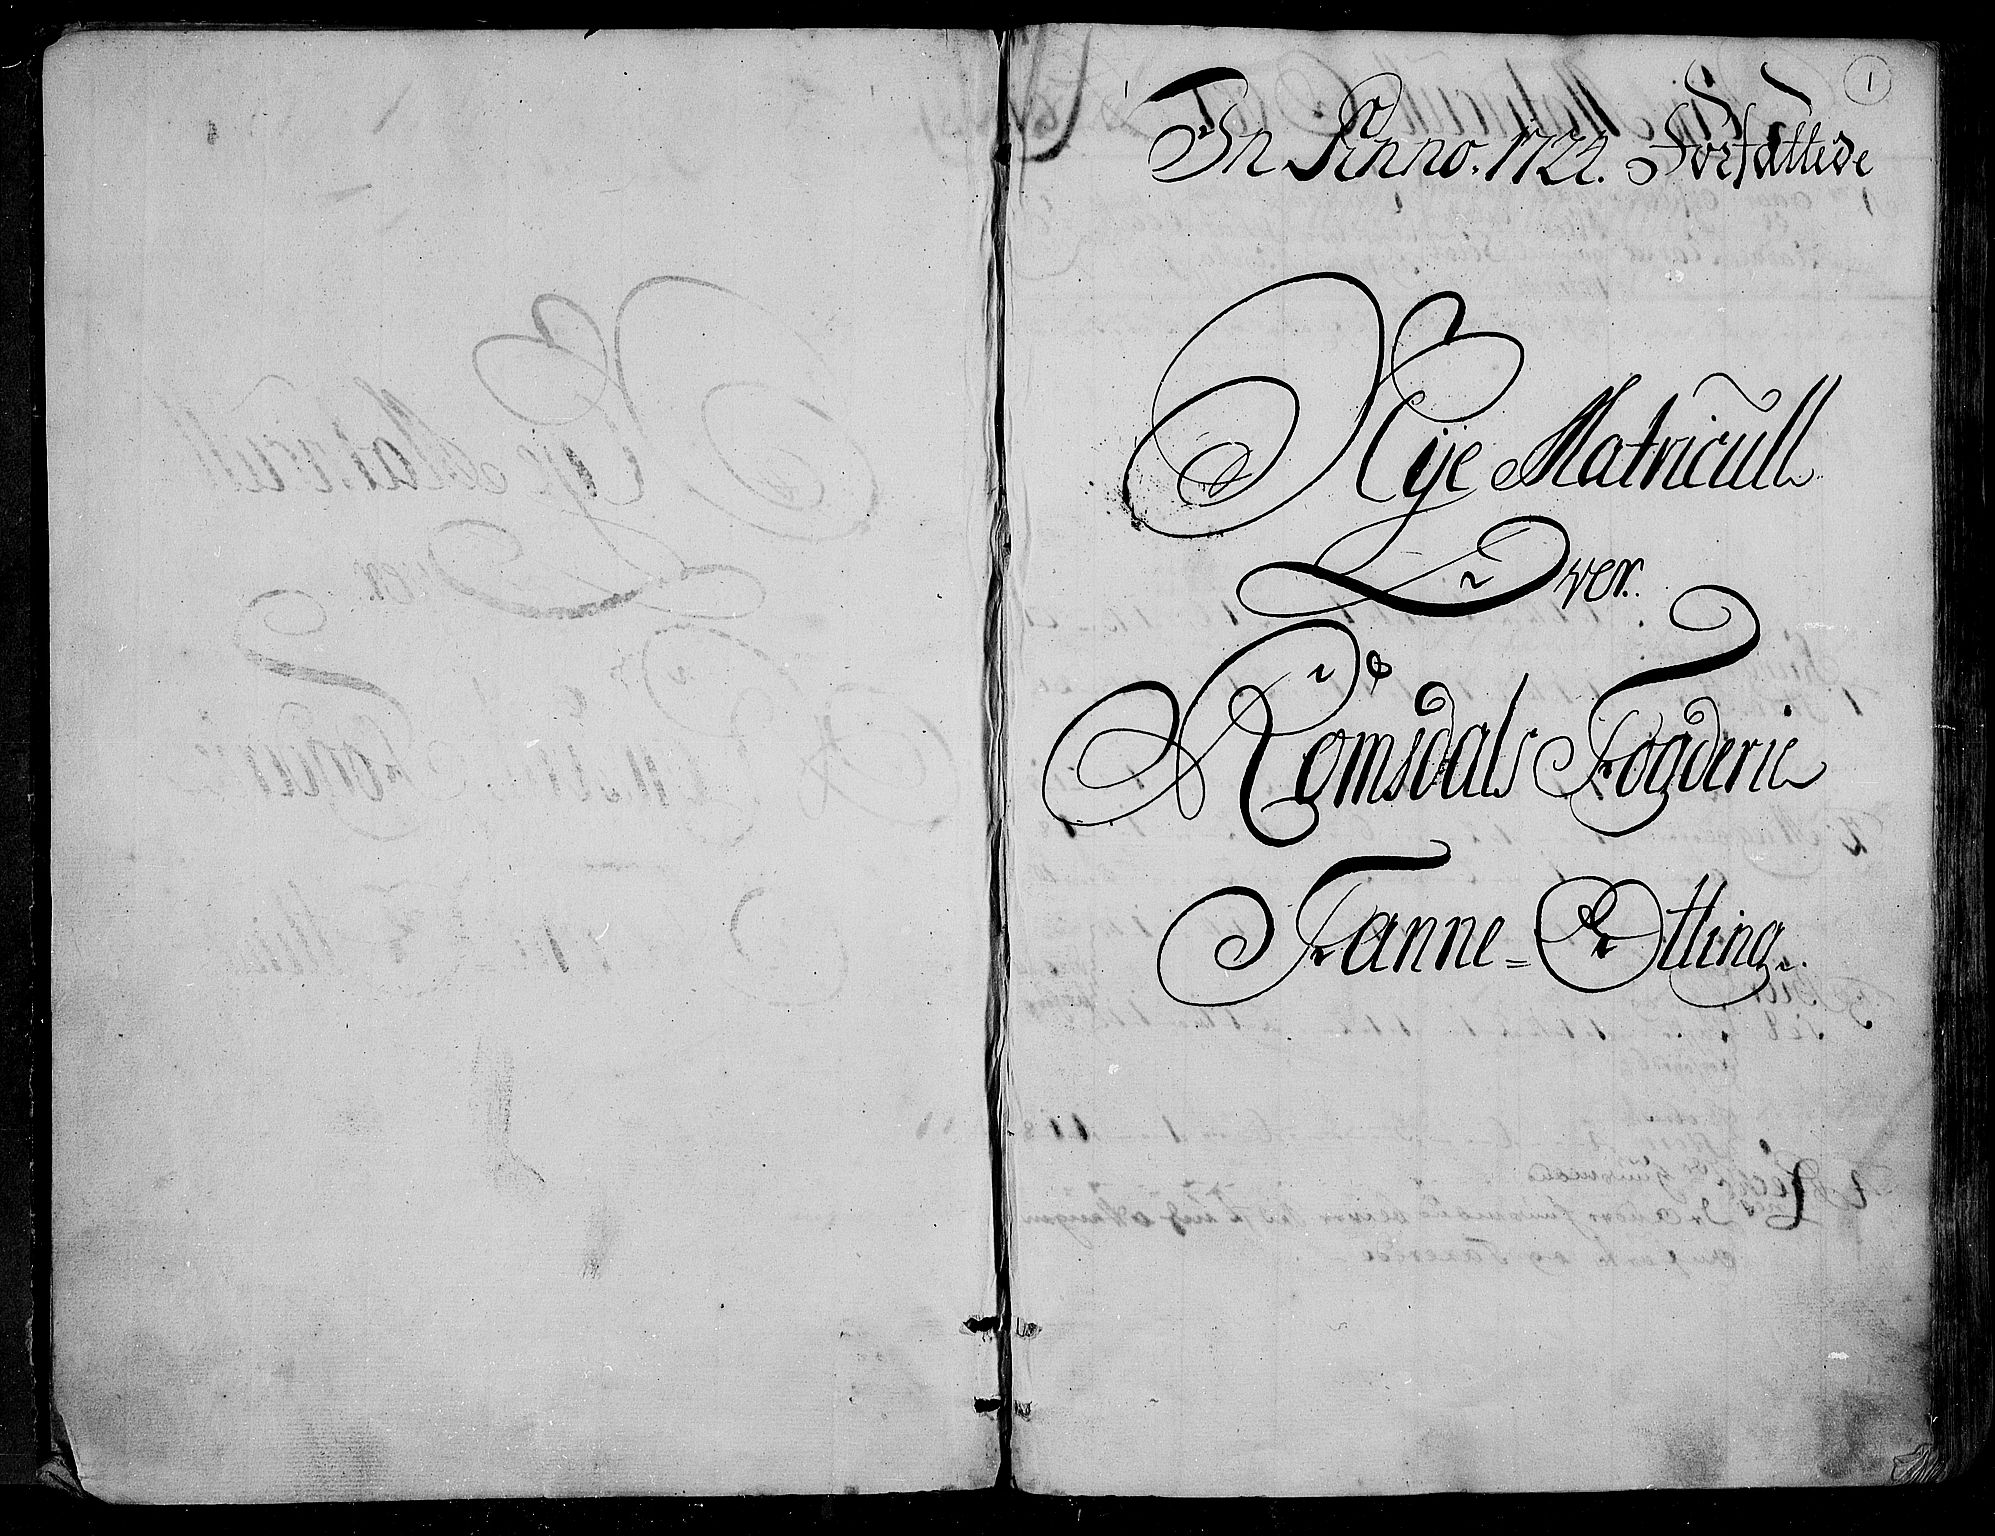 1
In Anno. 1724. Forfattede
Nÿe Matricull
Over.
Romsdals Fogderie
Tanne = Otting.